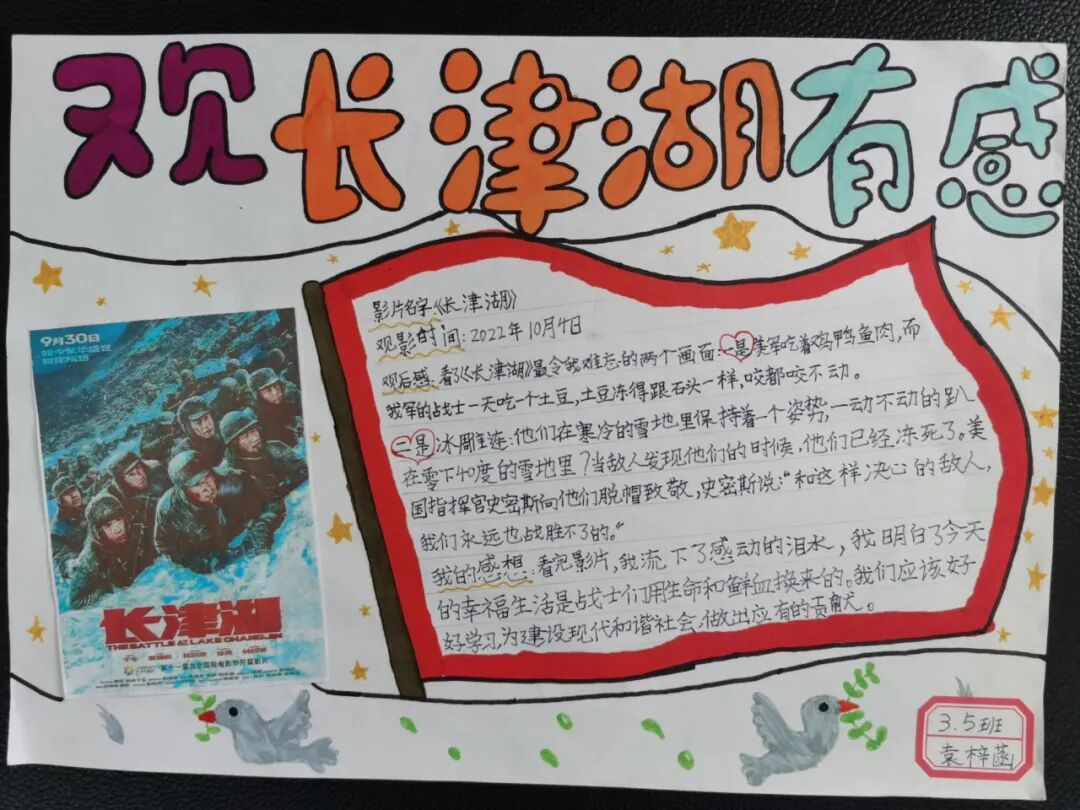 欢长津湖有感
9月30日
如今繁华盛世
如你所愿
长津湖
THE BATTLE AT LAKE CHANGJIN
影片名字《长津湖》
观影时间:2022年10月4日
观后感:看了《长津湖》最令我难忘的两个画面:一是美军吃着鸡鸭鱼肉,而
我军的战士一天吃一个土豆,土豆冻得跟石头一样,咬都咬不动。
二是冰雕连:他们在寒冷的雪地里保持着一个姿势,一动不动的趴
在零下40度的雪地里?当敌人发现他们的时候,他们已经冻死了。美
国指挥官史密斯向他们脱帽致敬,史密斯说:“和这样决心的敌人,
我们永远也战胜不了的。”
我的感想:看完影片,我流下了感动的泪水,我明白了今天
的幸福生活是战士们用生命和鲜血换来的。我们应该好
好学习,为建设现代和谐社会,做出应有的贡献。
3.5班
袁梓菡